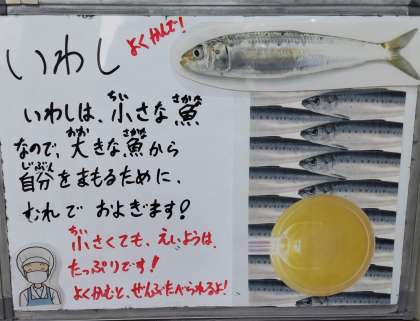 いわし
よくかんで!
いわしは、小さな魚
ちい さかな
なので、大きな魚から
おお さかな
自分をまもるために、
じぶん
むれで およぎます!
小さくても、えいようは、
ちい
たっぷりです!
よくかむと、ぜんぶたべられるよ!